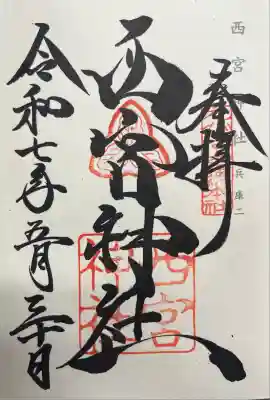 西宮神社 兵庫二
奉拝
西宮神社
西宮神社
令和七年五月三十日